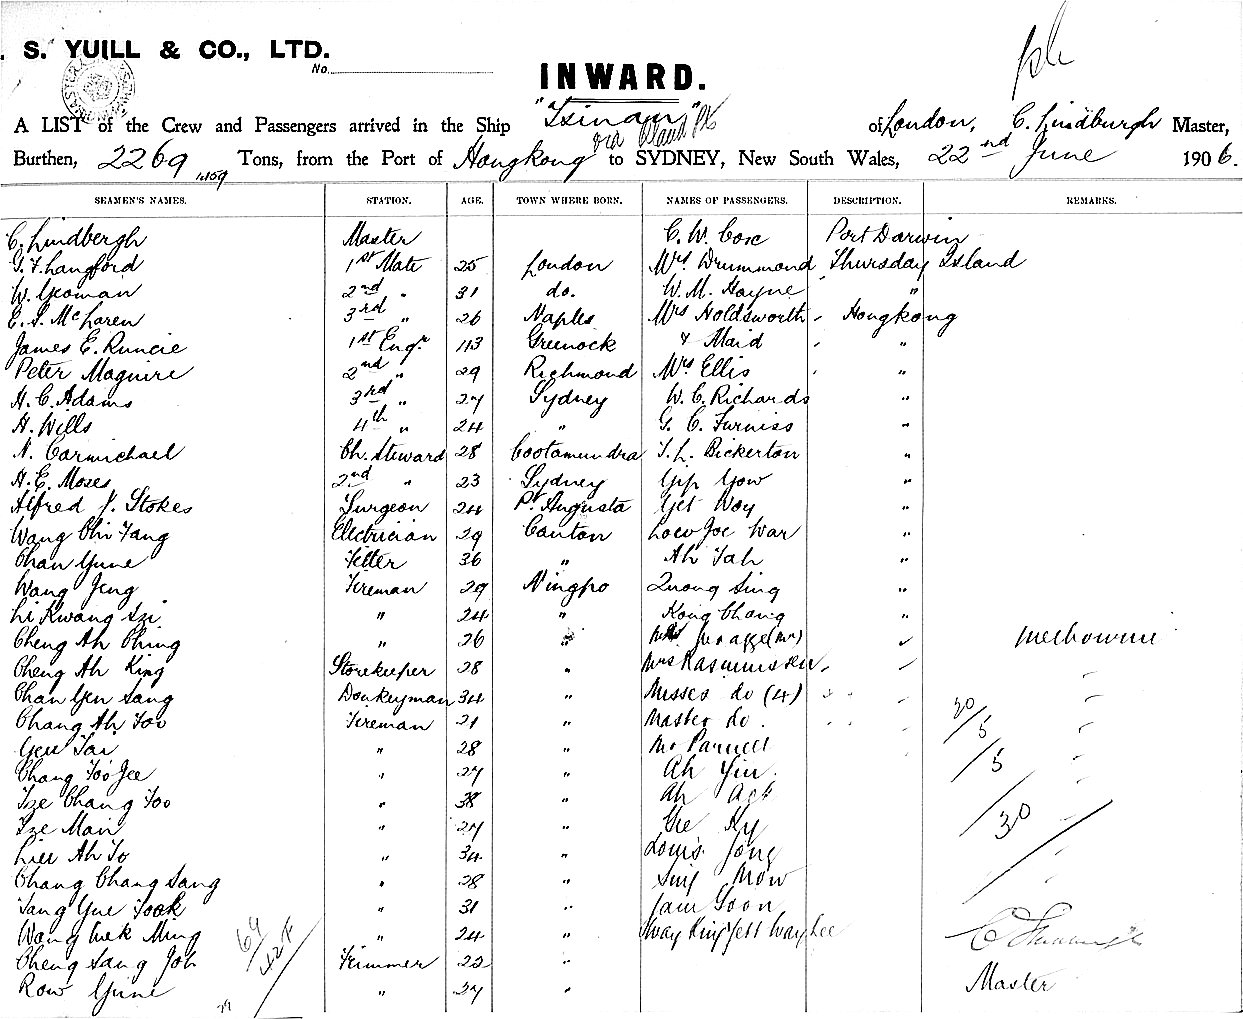 . S. YUILL & CO., LTD.
No.
INWARD.
A LIST of the Crew and Passengers arrived in the Ship "Tsinan" of London, C. Lindburgh Master,
via
Burthen, 2269 Tons, from the Port of Hongkong to SYDNEY, New South Wales, 22nd June 1906.
1459
SEAMEN'S NAMES. STATION. AGE. TOWN WHERE BORN. NAMES OF PASSENGERS. DESCRIPTION. REMARKS.
C. Lindbergh Master C. W. Coxe Port Darwin
G. F. Langford 1st Mate 25 London Mrs Drummond Thursday Island
W. Yeoman 2nd " 31 do. W. M. Hayne "
E. S. McLaren 3rd " 26 Naples Mrs Holdsworth Hongkong
James E. Runcie 1st Engr 43 Greenock & Maid "
Peter Maguire 2nd " 29 Richmond Mrs Ellis "
H. C. Adams 3rd " 27 Sydney W. C. Richards "
H. Wills 4th " 24 " G. C. Furniss "
N. Carmichael Ch. Steward 28 Cootamundra T. L. Bickerton "
H. E. Moses 2nd " 23 Sydney Yip Yow "
Alfred J. Stokes Surgeon 24 Pt. Augusta Get Woy "
Wang Chi Fang Electrician 29 Canton Low Joe War "
Chan Yune Fitter 36 " Ah Tah "
Wang Jeng Fireman 29 Ningpo Quong Sing "
Li Kwang Szi " 24 " Kong Chang "
Cheng Ah Ching " 26 " Melbourne
Cheng Ah King Storekeeper 28 " Mrs Rasmussen
Chan Yen Sang Donkeyman 34 " Misses do (4)
Chang Ah Foo Fireman 21 " Master do. 20/5
Yeu Tai " 28 " Mr Parnell
Chang Foo Jee " 27 " Ah Yin. /5
Tze Chang Foo " 38 " Ah Ack
Tze Man " 27 " Gee Hy 30
Lieu Ah To " 34 " Louis Jong
Chang Chang Sang " 28 " Sing Mow
Tang Yue Fook " 31 " Jam Goon
Wong Wek Ming " 24 " Way King Jett Way Lee
Cheng Sang Joh Trimmer 22 "
Row Yune " 27 " Master